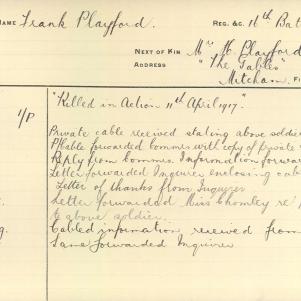 NAME Frank Playford. REG. &C. 11th Bat
NEXT OF KIN Mr H. Playford
ADDRESS "The Gables"
Mitcham. F
1/P "Killed in Action 11th April 1917."
Private cable received stating above soldier
P/Cable forwarded Commrs with copy of private
Reply from Commrs. Information forwar
Letter forwarded Inquirer enclosing cabl
Letter of thanks from Inquirer
Letter forwarded Miss Chomley re
to above soldier.
Cabled information received from
Same forwarded Inquirer